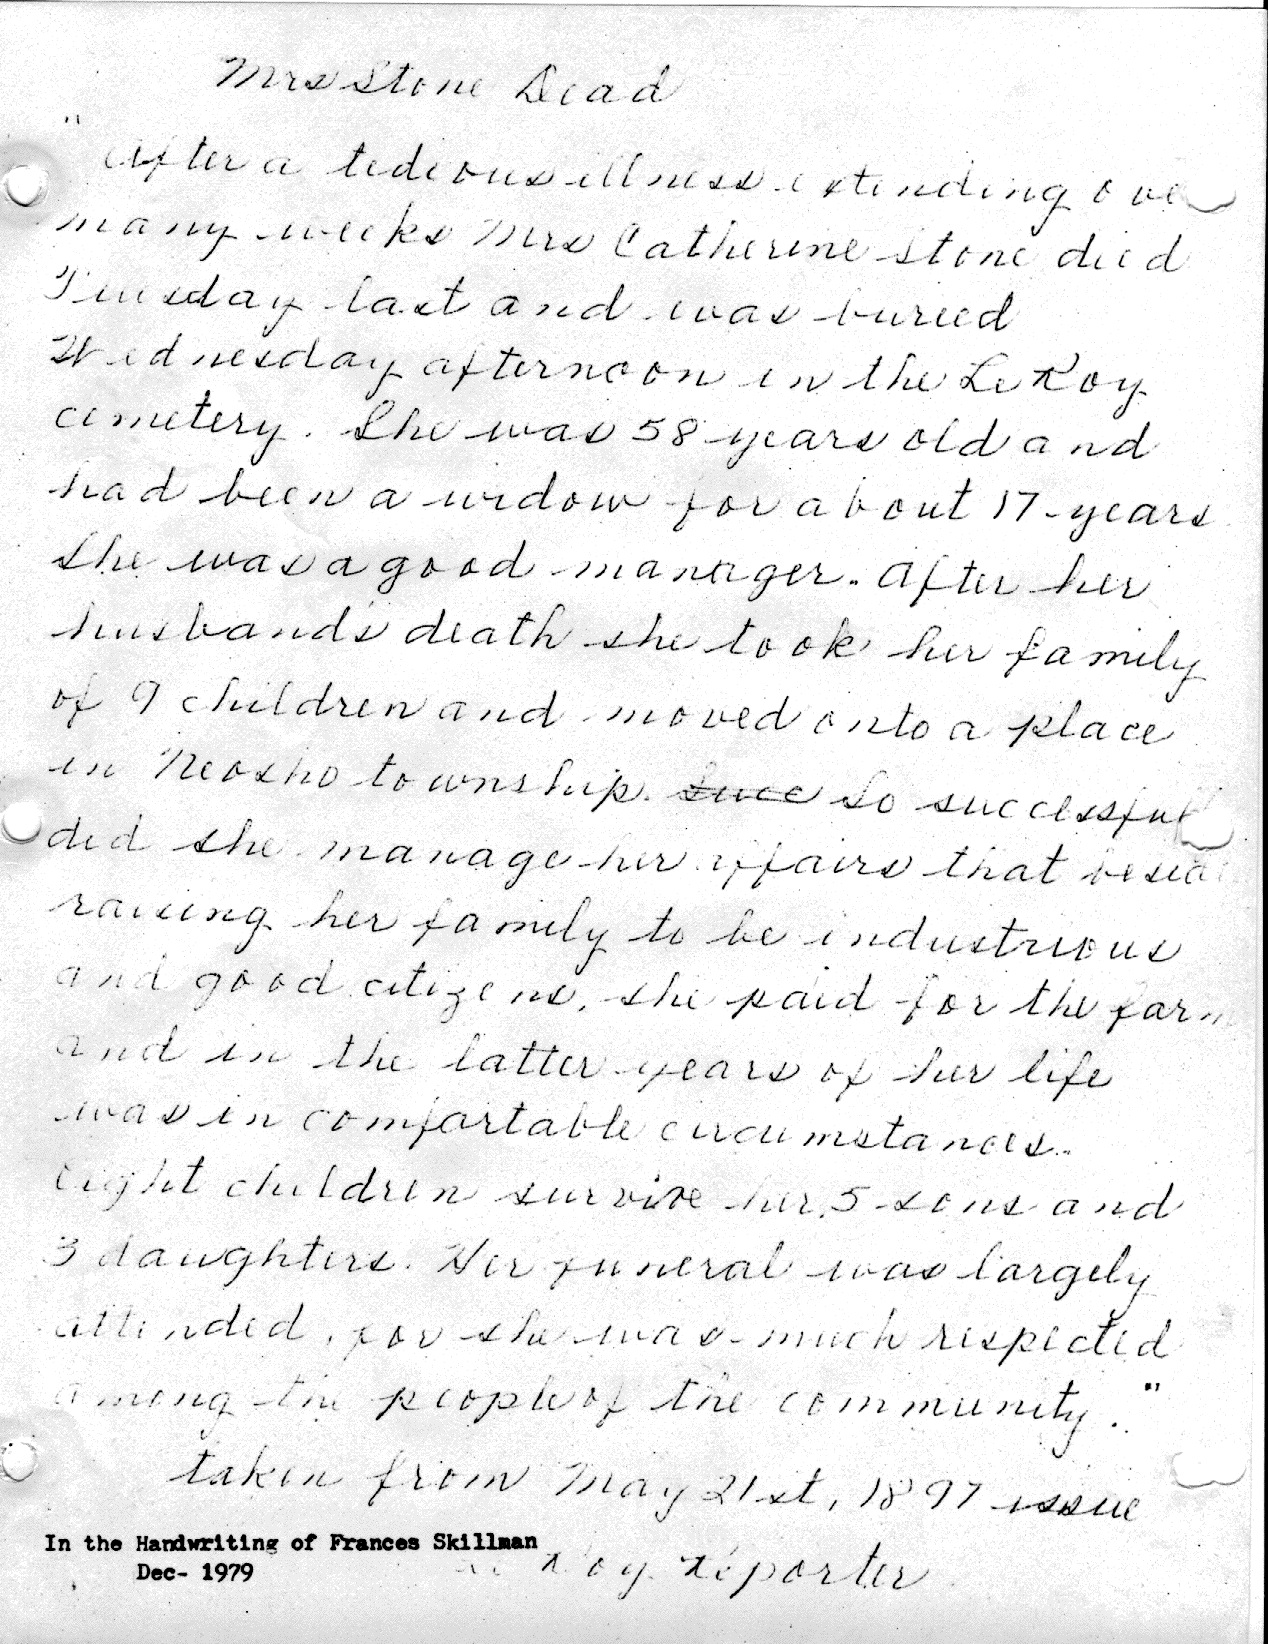 Mrs Stone Dead
"After a tedious illness extending ove
many weeks Mrs Catherine Stone died
Tuesday last and was buried
Wednesday afternoon in the LeRoy
cemetery. She was 58 years old and
had been a widow for about 17 years
She was a good manager. After her
husband's death she took her family
of 9 children and moved onto a place
in Neosho township. Succ So successful
did she manage her affairs that besid
raising her family to be industrious
and good citizens, she paid for the farm
and in the latter years of her life
was in comfortable circumstances.
Eight children survive her, 5 sons and
3 daughters. Her funeral was largely
attended, for she was much respected
among the people of the community."
taken from May 21st, 1897 issue
In the Handwriting of Frances Skillman
Dec- 1979
Roy Reporter